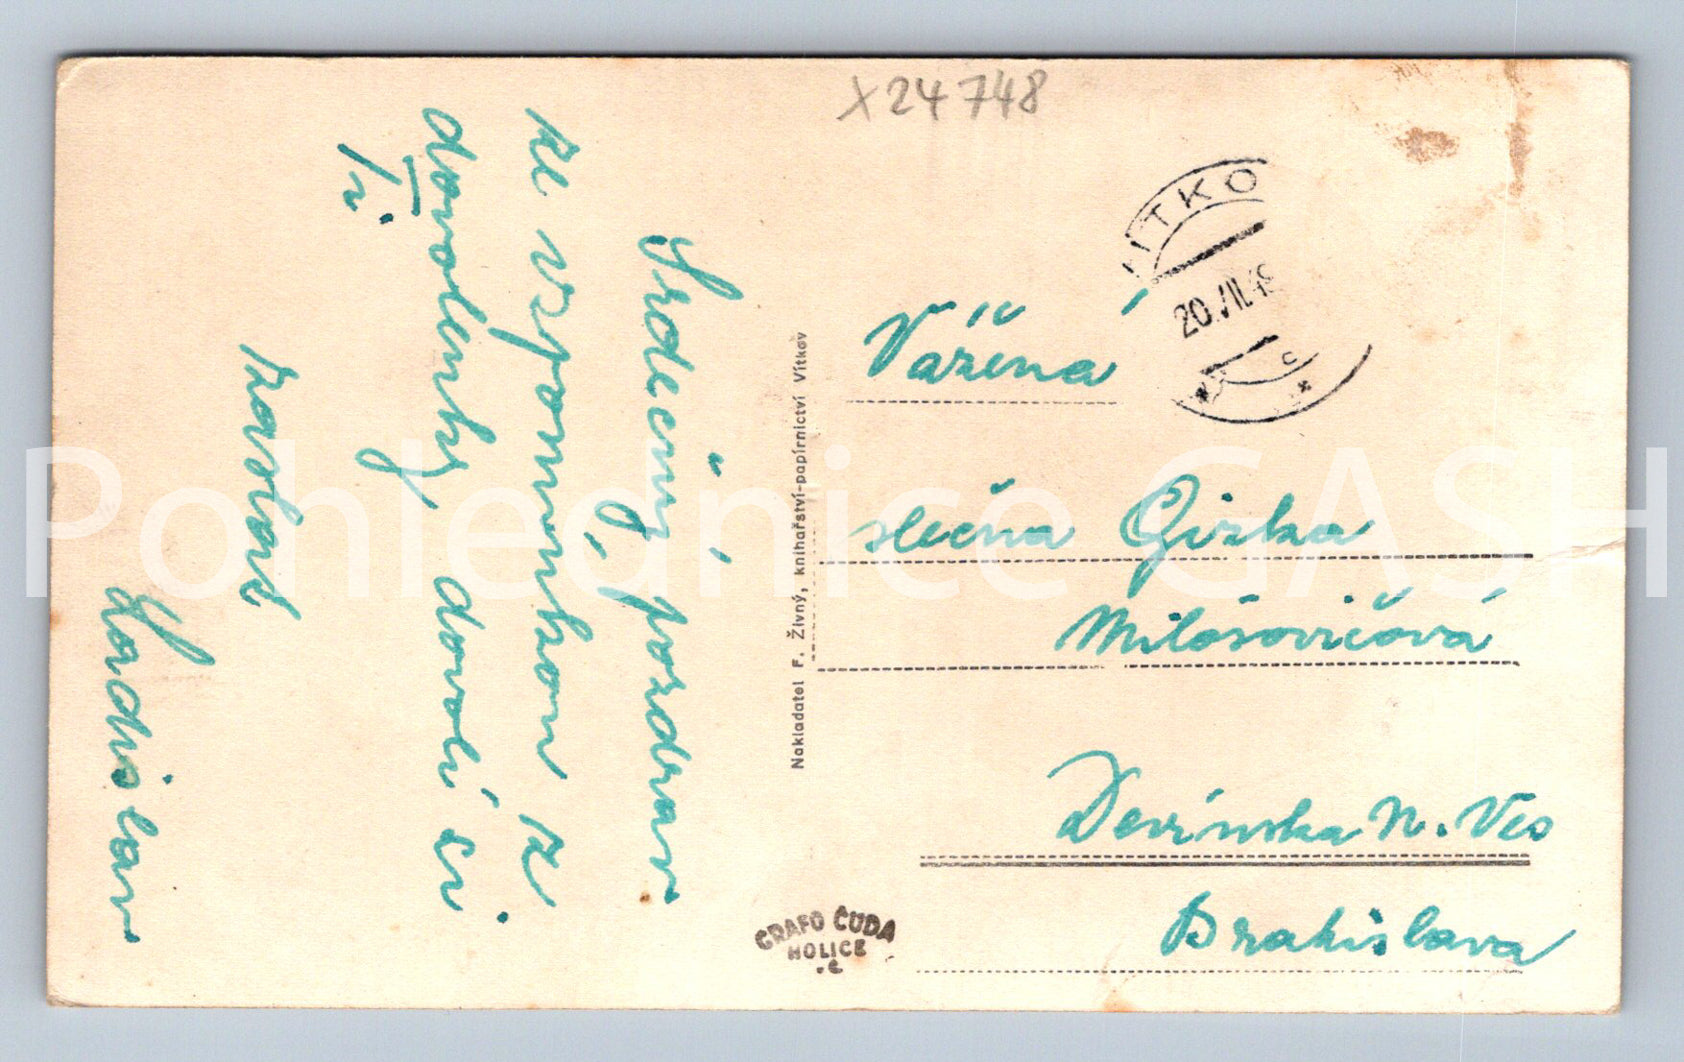 x24748
Srdečný pozdrav
ze vzpomínkou z
dovolenky dovolí si
Ti
Ladislav
VÍTKO
20.VII.49
C
Vážená
slečna Gizka
Milósovičová
Devínska N. Ves
Bratislava
Nakladatel F. Živný, knihařství-papírnictví Vítkov
GRAFO ČUDA
HOLICE
Pohlednice GASH